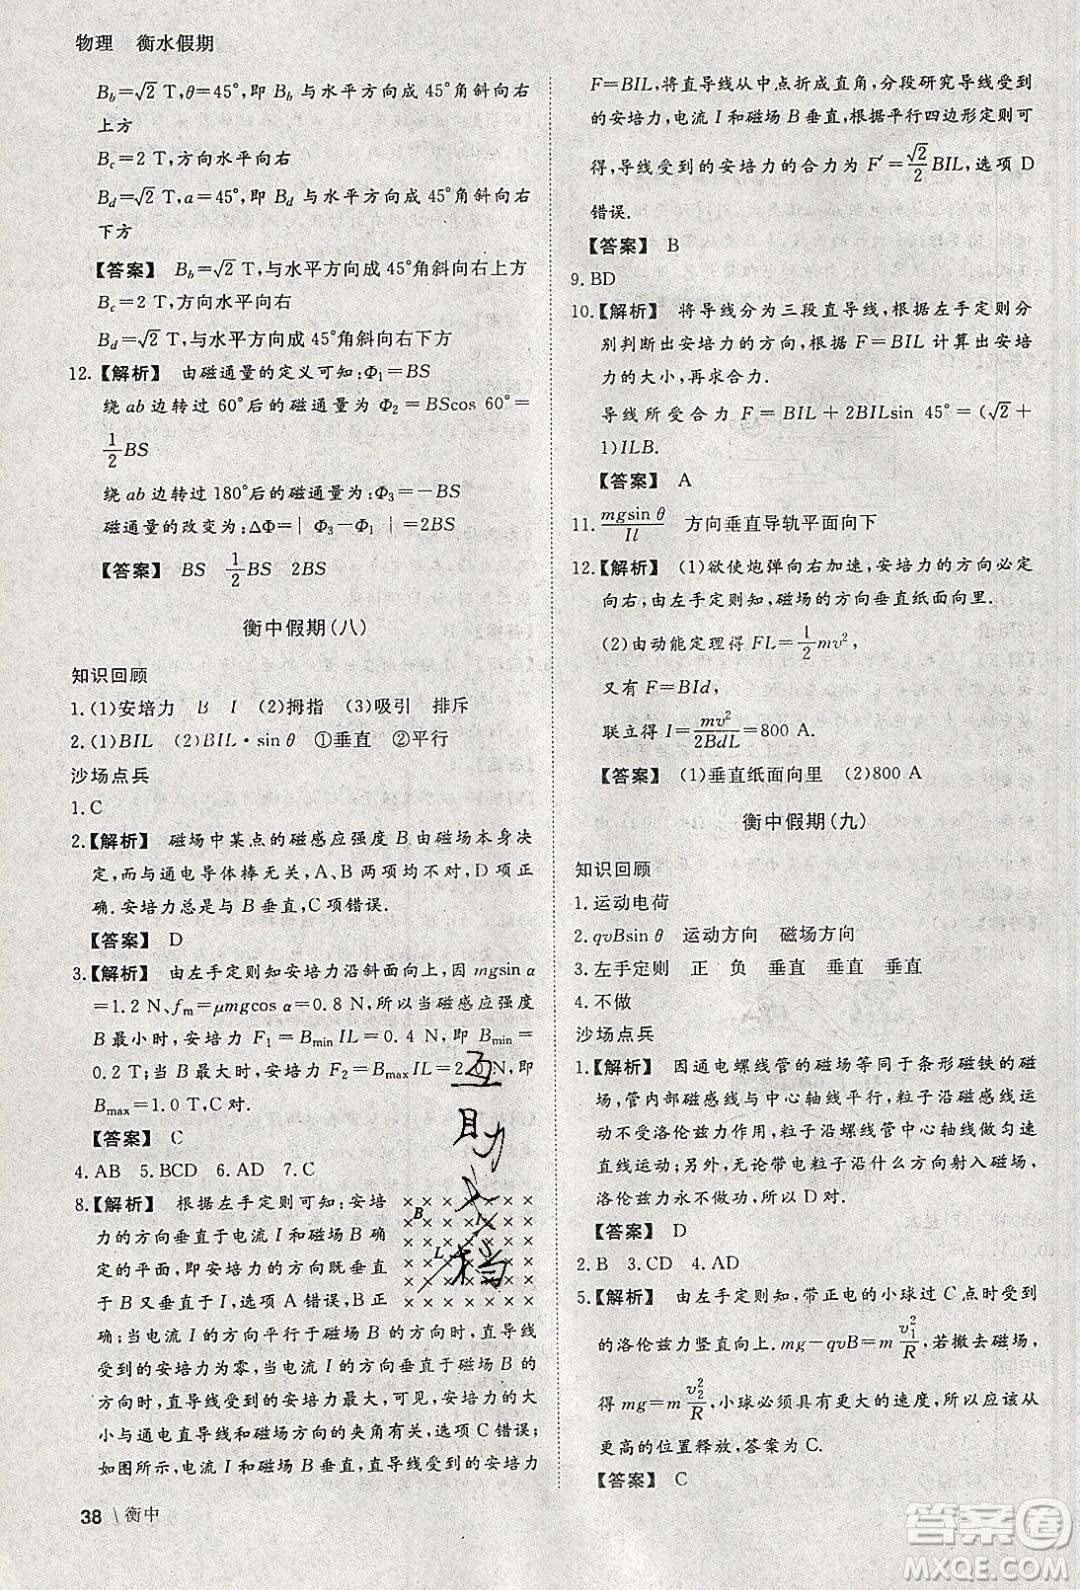 物理 衡水假期
B_b=√2 T,θ=45°,即 B_b 与水平方向成 45°角斜向右
上方
B_c=2 T,方向水平向右
B_d=√2 T,a=45°,即 B_d 与水平方向成 45°角斜向右
下方
【答案】 B_b=√2 T,与水平方向成 45°角斜向右上方
B_c=2 T,方向水平向右
B_d=√2 T,与水平方向成 45°角斜向右下方
12.【解析】 由磁通量的定义可知:Φ₁=BS
绕 ab 边转过 60°后的磁通量为 Φ₂=BScos 60°=
1/2 BS
绕 ab 边转过 180°后的磁通量为:Φ₃=-BS
磁通量的改变为:ΔΦ=|Φ₃-Φ₁|=2BS
【答案】 BS 1/2 BS 2BS
衡中假期(八)
知识回顾
1.(1)安培力 B I (2)拇指 (3)吸引 排斥
2.(1)BIL (2)BIL·sin θ ①垂直 ②平行
沙场点兵
1.C
2.【解析】 磁场中某点的磁感应强度 B 由磁场本身决
定,而与通电导体棒无关,A、B 两项均不对,D 项正
确.安培力总是与 B 垂直,C 项错误.
【答案】 D
3.【解析】 由左手定则知安培力沿斜面向上,因 mgsin α
=1.2 N,f_m=μmgcos α=0.8 N,所以当磁感应强度
B 最小时,安培力 F₁=B_min IL=0.4 N,即 B_min=
0.2 T;最大时,安培力 F₂=B_max IL=2.0 N,即
B_max=1.0 T,C 对.
【答案】 C
4.AB 5.BCD 6.AD 7.C
8.【解析】 根据左手定则可知:安培
力方向垂直于电流 I 和磁场 B 确
定的平面,即安培力的方向既垂直
于 B 又垂直于 I,选项 A 错误,B 正
确;当电流 I 的方向平行于磁场 B 的方向时,直导线
受到的安培力为零,当电流 I 的方向垂直于磁场 B 的
方向时,直导线受到的安培力最大,可见,安培力的大
小与通电直导线和磁场方向的夹角有关,选项 C 错误;
如图所示,电流 I 和磁场 B 垂直,直导线受到的安培力
B
I
L
38 \ 衡中
F=BIL,将直导线从中点折成直角,分段研究导线受到
的安培力,电流 I 和磁场 B 垂直,根据平行四边形定则可
得,导线受到的安培力的合力为 F′=√2/2 BIL,选项 D
错误.
【答案】 B
9.BD
10.【解析】 将导线分为三段直导线,根据左手定则分
别判断出安培力的方向,根据 F=BIL 计算出安培
力的大小,再求合力.
导线所受合力 F=BIL+2BILsin 45°=(√2+
1)ILB.
【答案】 A
11. mgsin θ/Il 方向垂直导轨平面向下
12.【解析】 (1)欲使炮弹向右加速,安培力的方向必定
向右,由左手定则知,磁场的方向垂直纸面向里.
(2)由动能定理得 FL=1/2 mv²,
又有 F=BId,
联立得 I=mv²/2BdL=800 A.
【答案】 (1)垂直纸面向里 (2)800 A
衡中假期(九)
知识回顾
1.运动电荷
2.qvBsin θ 运动方向 磁场方向
3.左手定则 正 负 垂直 垂直 垂直
4.不做
沙场点兵
1.【解析】 因通电螺线管的磁场等同于条形磁铁的磁
场,管内部磁感线与中心轴线平行,粒子沿磁感线运
动不受洛伦兹力作用,粒子沿螺线管中心轴线做匀速
直线运动;另外,无论带电粒子沿什么方向射入磁场,
洛伦兹力永不做功,所以 D 对.
【答案】 D
2.B 3.CD 4.AD
5.【解析】 由左手定则知,带正电的小球过 C 点时受到
的洛伦兹力竖直向上.mg-qvB=m v₁²/R,若撤去磁场,
得 mg=m v₂²/R,小球必须有更大的速度,所以应该从
更高的位置释放,答案为 C.
【答案】 C
互
助
文
档
答案圈
MXQE.COM